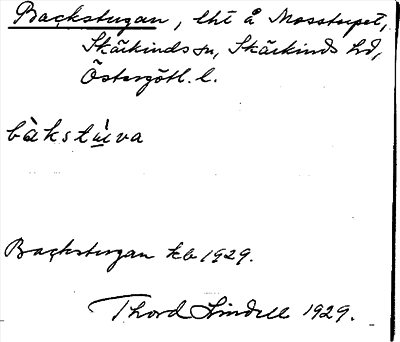 Backstugan, lht å Mosstorpet,
Skärkinds sn, Skärkinds hd,
Östergötl. l.
bàkstùva
Backstugan kb 1929.
Thord Lindell 1929.